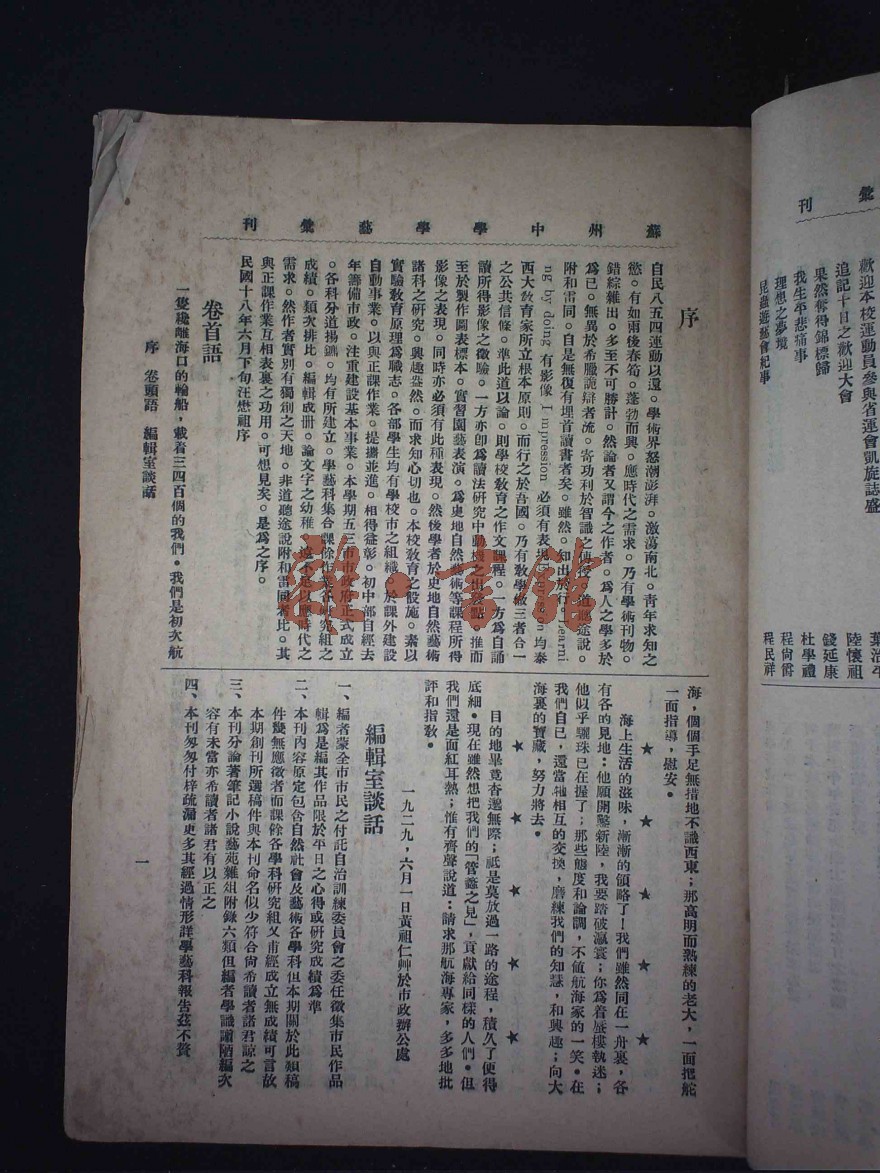 彙刊
歡迎本校運動員參與省運會凱旋誌盛
追記十日之歡迎大會
果然奪得錦標歸
我生平悲痛事
理想之夢境
昆蟲遊藝會紀事
葉治平
陸懷祖
錢延康
杜學禮
程尙爵
程民祥
蘇州中學學藝彙刊
序
自民八五四運動以還。學術界怒潮澎湃。激蕩南北。靑年求知之
慾。有如雨後春筍。蓬勃而興。應時代之需求。乃有學術刊物。
錯綜雜出。多至不可勝計。然論者又謂今之作者。爲人之學多於
爲已。無異於希臘詭辯者流。寄功利於智識之便捷。道聽途說。
附和雷同。自是無復有埋首讀書者矣。雖然。知出於行。Learni
ng by doing 有影像 Impression 必須有表現 均泰
西大敎育家所立根本原則。而行之於吾國。乃有敎學做三者合一
之公共信條。準此道以論。則學校敎育之作文課程。一方爲自誦
讀所得影像之徵驗。一方亦卽爲讀法硏究中動機之出發點。推而
至於製作圖表標本。實習園藝表演。爲史地自然藝術等課程所得
影像之表現。同時亦必須有此種表現。然後學者於史地自然藝術
諸科之硏究。興趣盎然。而求知心切也。本校敎育之設施。素以
實驗敎育原理爲職志。各部學生均有學校市之組織。於課外建設
自動事業。以與正課作業。提攜並進。相得益彰。初中部自經去
年籌備市政。注重建設基本事業。本學期五三市市政府正式成立
。各科分道揚鑣。均有所建立。學藝科集合課餘作業各硏究組之
成績。類次排比。編輯成冊。論文字之幼稚。遠不足以應時代之
需求。然作者實別有獨創之天地。非道聽途說附和雷同者比。其
與正課作業互相表裏之功用。可想見矣。是爲之序。
民國十八年六月下旬汪懋祖序
卷首語
一隻纔離海口的輪船，載着三四百個的我們。我們是初次航
海，個個手足無措地不識西東；那高明而熟練的老大，一面把舵
一面指導，慰安。
★ ★ ★ ★ ★
海上生活的滋味，漸漸的領略了！我們雖然同在一舟裏，各
有各的見地：他願開鑿新陸，我要踏破瀛寰；你爲着蜃樓執迷；
他似乎驪珠已在握了；那些態度和論調，不値航海家的一笑。在
我們自已，還當牠相互的交換，磨練我們的知慧，和興趣；向大
海裏的寶藏，努力將去。
★ ★ ★ ★ ★
目的地畢竟杳邈無際；祗是莫放過一路的途程，積久了便得
底細。現在雖然想把我們的「管蠡之見」，貢獻給同樣的人們。但
我們還是面紅耳熱；惟有齊聲說道：請求那航海專家，多多地批
評和指敎。
一九二九，六月一日黃祖仁艸於市政辦公處
編輯室談話
一、編者蒙全市市民之付託自治訓練委員會之委任徵集市民作品
輯爲是編其作品限於平日之心得或硏究成績爲準
二、本刊內容原定包含自然社會及藝術各學科但本期關於此類稿
件雙無應徵者而課餘各學科硏究組又甫經成立無成績可言故
本期創刊所選稿件與本刊命名似少符合尙希讀者諸君諒之
三、本刊分論著筆記小說藝苑雜俎附錄六類但編者學識譾陋編次
容有未當亦希讀者諸君有以正之
四、本刊匆匆付梓疏漏更多其經過情形詳學藝科報吿茲不贅
序 卷頭語 編輯室談話
一